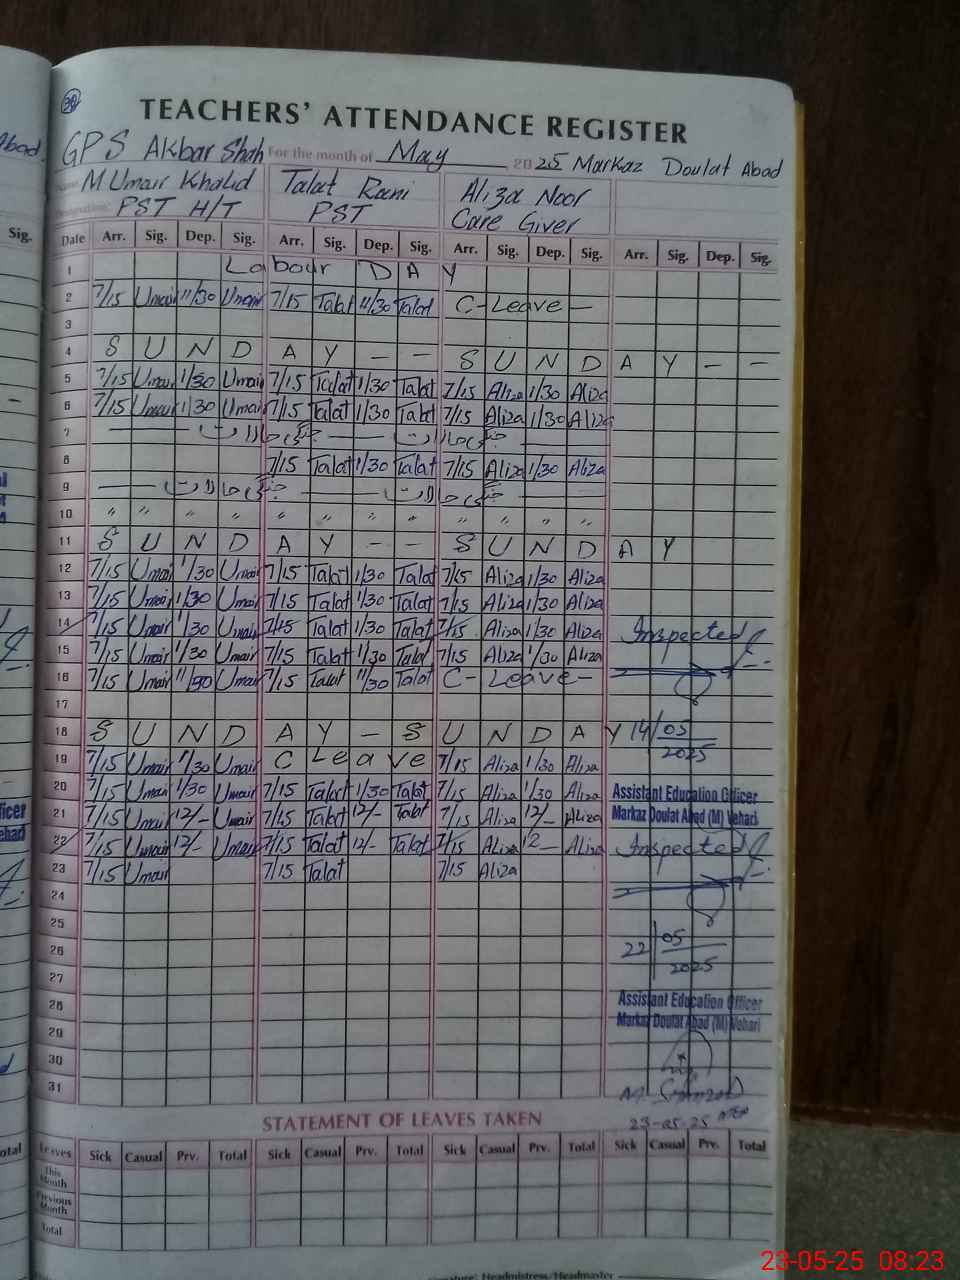 39
TEACHERS' ATTENDANCE REGISTER
GPS Akbar Shah For the month of May 2025 Markaz Doulat Abad
Name M Umair Khalid Talat Rani Aliza Noor
Designation: PST H/T PST Care Giver
Date Arr. Sig. Dep. Sig. Arr. Sig. Dep. Sig. Arr. Sig. Dep. Sig. Arr. Sig. Dep. Sig.
1 Labour DAY
2 7/15 Umair 11/30 Umair 7/15 Talat 11/30 Talat C-Leave-
3
4 SUNDAY-- SUNDAY--
5 7/15 Umair 1/30 Umair 7/15 Talat 1/30 Talat 7/15 Aliza 1/30 Aliza
6 7/15 Umair 1/30 Umair 7/15 Talat 1/30 Talat 7/15 Aliza 1/30 Aliza
7 جنگی حالات جنگی حالات
8 7/15 Talat 1/30 Talat 7/15 Aliza 1/30 Aliza
9 جنگی حالات جنگی حالات
10 " " " " " " " " " " " "
11 SUNDAY-- SUNDAY
12 7/15 Umair 1/30 Umair 7/15 Talat 1/30 Talat 7/15 Aliza 1/30 Aliza
13 7/15 Umair 1/30 Umair 7/15 Talat 1/30 Talat 7/15 Aliza 1/30 Aliza
14 7/15 Umair 1/30 Umair 7/15 Talat 1/30 Talat 7/15 Aliza 1/30 Aliza Inspected
15 7/15 Umair 1/30 Umair 7/15 Talat 1/30 Talat 7/15 Aliza 1/30 Aliza
16 7/15 Umair 11/30 Umair 7/15 Talat 11/30 Talat C-Leave-
17
18 SUNDAY- SUNDAY 14/05/2025
19 7/15 Umair 1/30 Umair C Leave 7/15 Aliza 1/30 Aliza
20 7/15 Umair 1/30 Umair 7/15 Talat 1/30 Talat 7/15 Aliza 1/30 Aliza Assistant Education Officer
21 7/15 Umair 12/- Umair 7/15 Talat 12/- Talat 7/15 Aliza 12/- Aliza Markaz Doulat Abad (M) Vehari
22 7/15 Umair 12/- Umair 7/15 Talat 12/- Talat 7/15 Aliza 12- Aliza Inspected
23 7/15 Umair 7/15 Talat 7/15 Aliza
24
25
26 22/05/2025
27
28 Assistant Education Officer
29 Markaz Doulat Abad (M) Vehari
30
31
23-05-25
STATEMENT OF LEAVES TAKEN
Leaves Sick Casual Prv. Total Sick Casual Prv. Total Sick Casual Prv. Total Sick Casual Prv. Total
This Month
Previous Month
Total
Headmistress/Headmaster
23-05-25 08:23